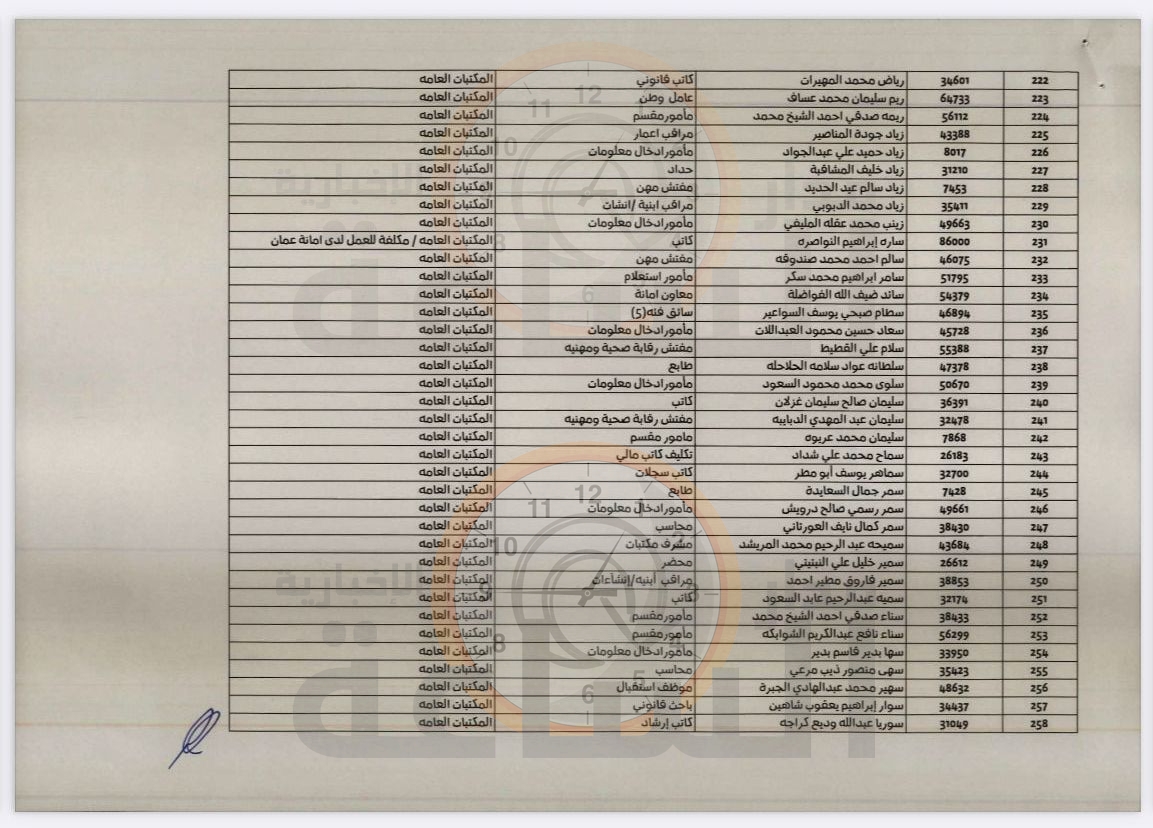 222 34601 رياض محمد المهيرات كاتب قانوني المكتبات العامه
223 64733 ريم سليمان محمد عساف عامل وطن المكتبات العامه
224 56112 ريمه صدقي احمد الشيخ محمد مأمورمقسم المكتبات العامه
225 43388 زياد جودة المناصير مراقب اعمار المكتبات العامه
226 8017 زياد حميد علي عبدالجواد مأمورادخال معلومات المكتبات العامه
227 31210 زياد خليف المشاقبة حداد المكتبات العامه
228 7453 زياد سالم عيد الحديد مفتش مهن المكتبات العامه
229 35411 زياد محمد الدبوبي مراقب ابنية /انشات المكتبات العامه
230 49663 زينب محمد عقله المليفي مأمورادخال معلومات المكتبات العامه
231 86000 ساره إبراهيم النواصره كاتب المكتبات العامه / مكلفة للعمل لدى امانة عمان
232 46075 سالم احمد محمد صندوقه مفتش مهن المكتبات العامه
233 51795 سامر ابراهيم محمد سكر مأمور استعلام المكتبات العامه
234 54379 ساند ضيف الله الفواضلة معاون امانة المكتبات العامه
235 46894 سطام صبحي يوسف السواعير سائق فئه(5) المكتبات العامه
236 45728 سعاد حسين محمود العبداللات مأمورادخال معلومات المكتبات العامه
237 55388 سلام علي القطيط مفتش رقابة صحية ومهنيه المكتبات العامه
238 47378 سلطانه عواد سلامه الحلاحله طابع المكتبات العامه
239 50670 سلوى محمد محمود السعود مأمورادخال معلومات المكتبات العامه
240 36391 سليمان صالح سليمان غزلان كاتب المكتبات العامه
241 32478 سليمان عبد المهدي الدبايبه مفتش رقابة صحية ومهنيه المكتبات العامه
242 7868 سليمان محمد عربوه مامور مقسم المكتبات العامه
243 26183 سماح محمد علي شداد تكليف كاتب مالي المكتبات العامه
244 32700 سماهر يوسف أبو مطر كاتب سجلات المكتبات العامه
245 7428 سمر جمال السعايدة طابع المكتبات العامه
246 49661 سمر رسمي صالح درويش مأمورادخال معلومات المكتبات العامه
247 38430 سمر كمال نايف العورتاني محاسب المكتبات العامه
248 43684 سميحه عبد الرحيم محمد المريشد مشرف مكتبات المكتبات العامه
249 26612 سمير خليل علي النبتيتي محضر المكتبات العامه
250 38853 سمير فاروق مطير احمد مراقب أبنيه/إنشاءات المكتبات العامه
251 32174 سميه عبدالرحيم عابد السعود كاتب المكتبات العامه
252 38433 سناء صدقي احمد الشيخ محمد مأمورمقسم المكتبات العامه
253 56299 سناء نافع عبدالكريم الشوابكه مأمورمقسم المكتبات العامه
254 33950 سها بدير قاسم بدير مأمورادخال معلومات المكتبات العامه
255 35423 سهى منصور ذيب مرعي محاسب المكتبات العامه
256 48632 سهير محمد عبدالهادي الجبرة موظف استقبال المكتبات العامه
257 34437 سوار إبراهيم يعقوب شاهين باحث قانوني المكتبات العامه
258 31049 سوريا عبدالله وديع كراجه كاتب إرشاد المكتبات العامه